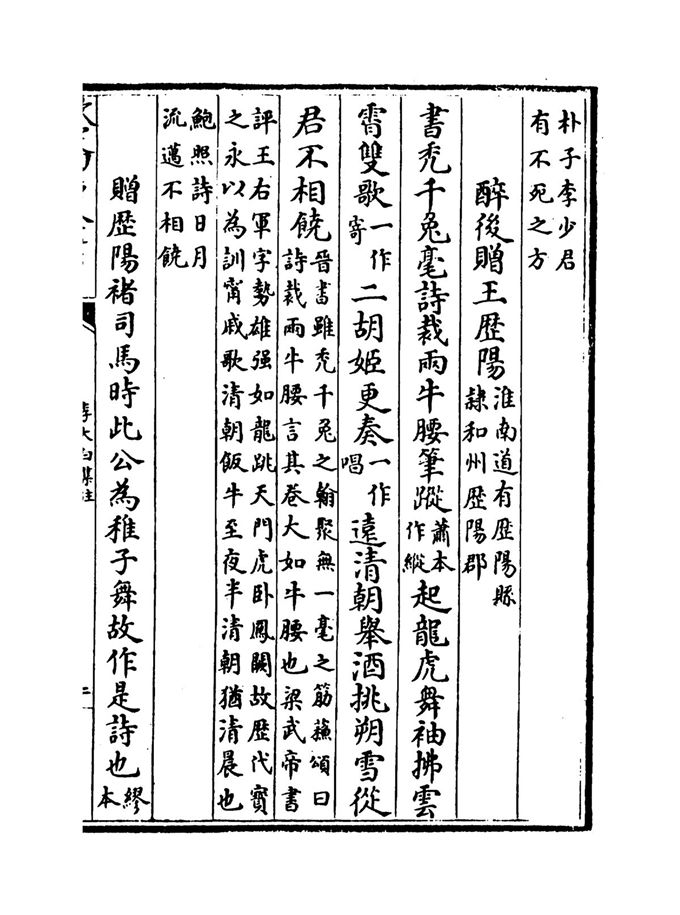 朴子李少君
有不死之方
醉後贈王歴陽淮南道有歴陽縣
隷和州歴陽郡
書禿千兔毫詩裁兩牛腰筆蹤蕭本
作縱起龍虎舞袖拂雲
霄雙歌一作
寄二胡姬更奏一作
唱遠清朝舉酒挑朔雪從
君不相饒晉書雖禿千兔之翰聚無一毫之筋蘇頌曰
詩裁兩牛腰言其卷大如牛腰也梁武帝書
評王右軍字勢雄强如龍跳天門虎卧鳳闕故歴代寳
之永以為訓甯戚歌清朝飯牛至夜半清朝猶清晨也
鮑照詩日月
流邁不相饒
贈歴陽褚司馬時此公為稚子舞故作是詩也繆
本
李太白集注